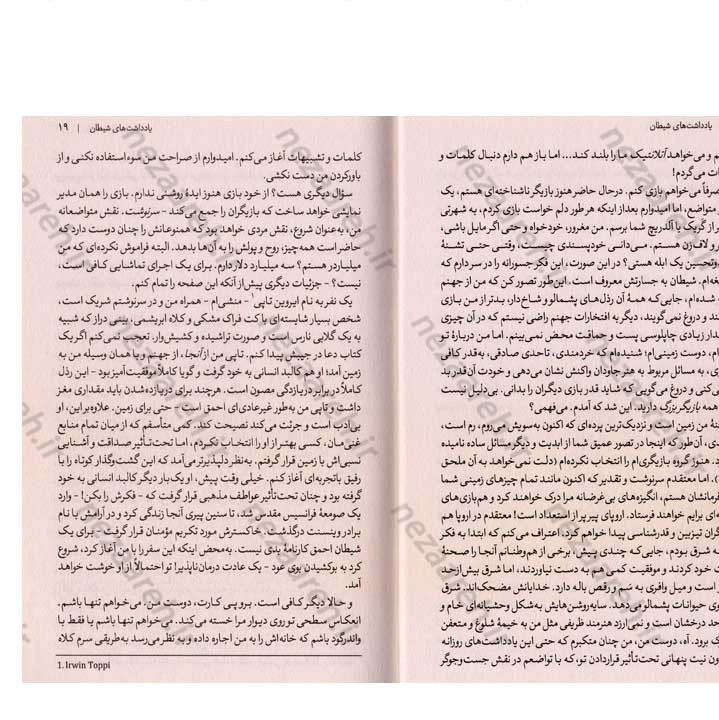 یادداشت‌های شیطان
م و می‌خواهد آتلانتیک ما را بلند کند... اما باز هم دارم دنبال کلمات و
ات می‌گردم!
صرفاً می‌خواهم بازی کنم. درحال حاضر هنوز بازیگر ناشناخته‌ای هستم، یک
متواضع، اما امیدوارم بعد از اینکه هر طور دلم خواست بازی کردم، به شهرتی
ر از گریک یا آلدریج شما برسم. من مغرور، خودخواه و حتی اگر مایل باشی،
ر و لاف‌زن هستم. می‌دانی خودپسندی چیست، وقتی حتی تشنهٔ
وتحسین یک ابله هستی؟ در این صورت، این فکر جسورانه را در سر دارم که
غه‌ام. شیطان به جسارتش معروف است. این‌طور تصور کن که من از جهنم
ده‌ام، جایی‌که همهٔ آن رذل‌های پشمالو و شاخ‌دار، بدتر از من بازی
ند و دروغ نمی‌گویند، دیگر به افتخارات جهنم راضی نیستم که در آن چیزی
دار زیادی چاپلوسی پست و حماقت محض نمی‌بینم. اما من دربارهٔ تو
ام، دوست زمینی‌ام؛ شنیده‌ام که خردمندی، تاحدی صادقی، به‌قدر کافی
ی، به مسائل مربوط به هنر جاودان واکنش نشان می‌دهی و خودت آن‌قدر بد
می‌کنی و دروغ می‌گویی که شاید قدر بازی دیگران را بدانی. بی‌دلیل نیست
همه بازیگر بزرگ دارید. این شد که آمدم. می‌فهمی؟
نهٔ من زمین است و نزدیک‌ترین پرده‌ای که اکنون به‌سویش می‌روم، رم است،
ی، آن‌طور که اینجا در تصور عمیق شما از ابدیت و دیگر مسائل ساده نامیده
د. هنوز گروه بازیگری‌ام را انتخاب نکرده‌ام (دلت نمی‌خواهد به آن ملحق
). اما معتقدم سرنوشت و تقدیر که اکنون مانند تمام چیزهای زمینی شما
فرمانشان هستم، انگیزه‌های بی‌غرضانه مرا درک خواهند کرد و هم‌بازی‌های
ه‌ای برایم خواهند فرستاد. اروپای پیر پر از استعداد است! معتقدم در اروپا هم
گران تیزبین و قدرشناسی پیدا خواهم کرد. اعتراف می‌کنم که ابتدا به فکر
به شرق بودم، جایی‌که چندی پیش، برخی از هم‌وطنانم آنجا را صحنهٔ
ت خود کردند و موفقیت کمی هم به دست نیاوردند، اما شرق بیش‌ازحد
ر است و میل وافری به سَم و رقص باله دارد. خدایانش مضحک‌اند. شرق
وی حیوانات پشمالو می‌دهد. سایه‌روشن‌هایش به‌شکل وحشیانه‌ای خام و
حد درخشان است و نمی‌ارزد هنرمند ظریفی مثل من به خیمهٔ شلوغ و متعفن
ک برود. آه، دوست من، من چنان متکبرم که حتی این یادداشت‌های روزانه
ون نیت پنهانی تحت‌تأثیر قراردادن تو، که با تواضعم در نقش جست‌وجوگر
یادداشت‌های شیطان | ۱۹
کلمات و تشبیهات آغاز می‌کنم. امیدوارم از صراحت من سوءاستفاده نکنی و از
باورکردن من دست نکشی.
سؤال دیگری هست؟ از خود بازی هنوز ایدهٔ روشنی ندارم. بازی را همان مدیر
نمایشی خواهد ساخت که بازیگران را جمع می‌کند - سرنوشت. نقش متواضعانه
من، به‌عنوان شروع، نقش مردی خواهد بود که همنوعانش را چنان دوست دارد که
حاضر است همه‌چیز، روح و پولش را به آن‌ها بدهد. البته فراموش نکرده‌ای که من
میلیاردر هستم؟ سه میلیارد دلار دارم. برای یک اجرای تماشایی کافی است،
نیست؟ - جزئیات دیگری پیش از آنکه این صفحه را تمام کنم.
یک نفر به نام ایروین تاپی۱ - منشی‌ام - همراه من و در سرنوشتم شریک است،
شخص بسیار شایسته‌ای با کت فراک مشکی و کلاه ابریشمی، بینی دراز که شبیه
به یک گلابی نارس است و صورت تراشیده و کشیش‌وار. تعجب نمی‌کنم اگر یک
کتاب دعا در جیبش پیدا کنم. تاپی من از آنجا، از جهنم و با همان وسیله من به
زمین آمد؛ او هم کالبد انسانی به خود گرفت و گویا کاملاً موفقیت‌آمیز بود - این رذل
کاملاً در برابر دریازدگی مصون است. هرچند برای دریازده‌شدن باید مقداری مغز
داشت و تاپی من به‌طور غیرعادی‌ای احمق است، حتی برای زمین. علاوه‌براین، او
بی‌ادب است و جرئت می‌کند نصیحت کند. کمی متأسفم که از میان تمام منابع
غنی‌مان، کسی بهتر از او را انتخاب نکردم، اما تحت‌تأثیر صداقت و آشنایی
نسبی‌اش با زمین قرار گرفتم. به‌نظر دلپذیرتر می‌آمد که این گشت‌وگذار کوتاه را با
رفیق باتجربه‌ای آغاز کنم. خیلی وقت پیش، او یک‌بار دیگر کالبد انسانی به خود
گرفته بود و چنان تحت‌تأثیر عواطف مذهبی قرار گرفت که - فکرش را بکن! - وارد
یک صومعهٔ فرانسیس مقدس شد، تا سنین پیری آنجا زندگی کرد و در آرامش با نام
برادر وینسنت درگذشت. خاکسترش مورد تکریم مؤمنان قرار گرفت - برای یک
شیطان احمق کارنامهٔ بدی نیست. به‌محض اینکه این سفر را با من آغاز کرد، شروع
کرد به بوکشیدن بوی عود - یک عادت درمان‌ناپذیر! تو احتمالاً از او خوشت خواهد
آمد.
و حالا دیگر کافی است. برو پی کارت، دوست من. می‌خواهم تنها باشم.
انعکاس سطحی تو روی دیوار مرا خسته می‌کند. می‌خواهم تنها باشم یا فقط با
واندرگرد باشم که خانه‌اش را به من اجاره داده و به نظر می‌رسد به‌طریقی سرم کلاه
1. Irwin Toppi
nezamehr.ir